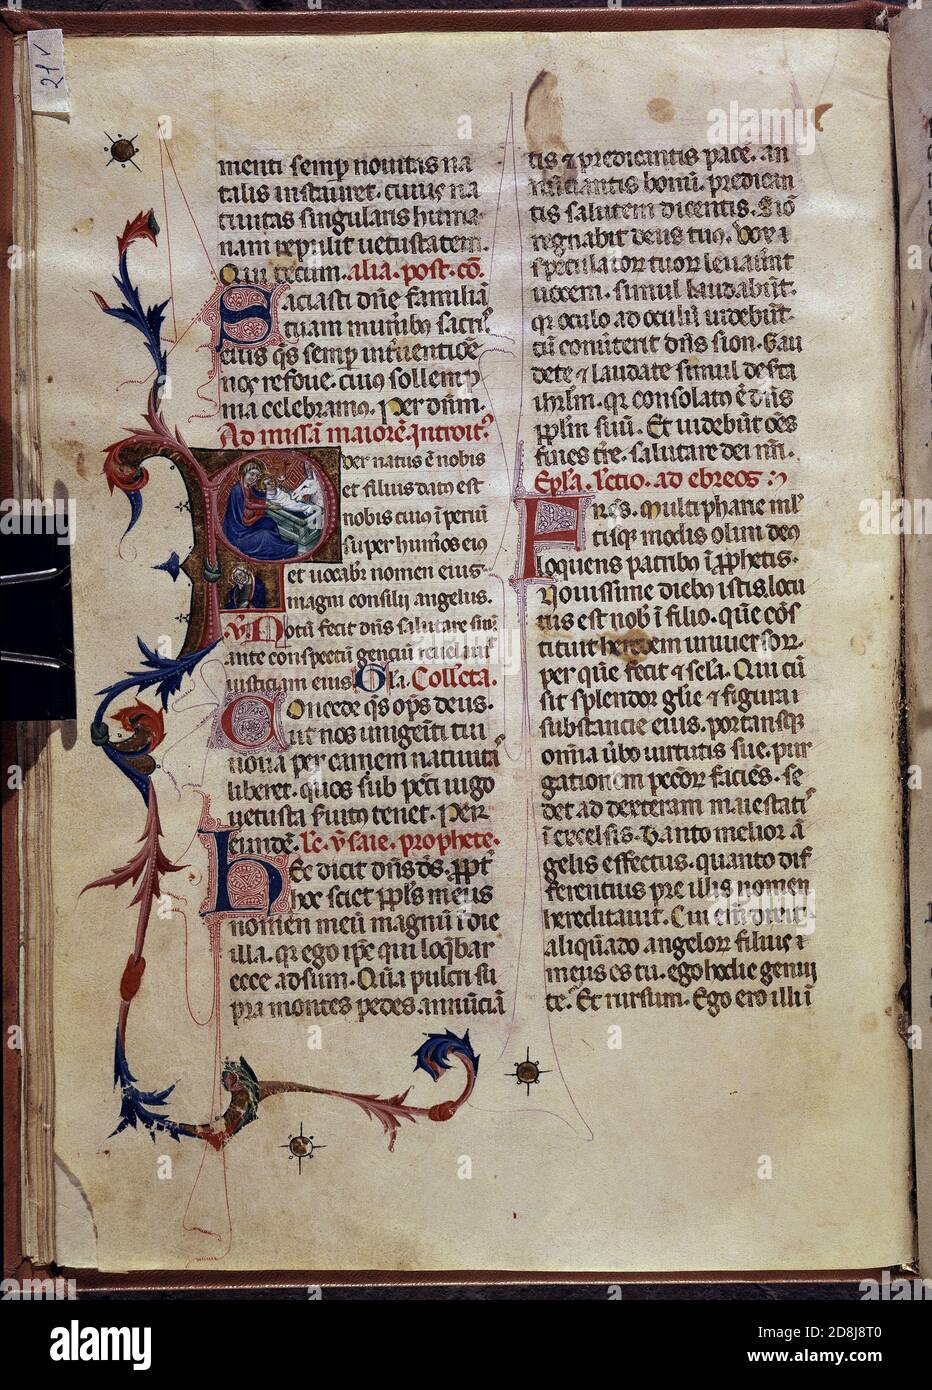 21v
menti semp novitas na
talis instauret. cuius na
tivitas singularis huma
nam repulit vetustatem.
Qui tecum. alia. post. cō.
Saciasti dn̄e familiā
tuam munībus sacris
eius qs semp intvencione
nos refove. cuius sollemp
nia celebramus. Per dnm.
Ad missā maiorē. introit9.
Puer natus ē nobis
et filius datus est
nobis cuius ī periū
super humeros eius
et vocabit nomen eius.
magni consilii angelus.
v. Notū fecit dn̄s salutare suū.
ante conspectū genciū revel
iusticiam eius. Collecta.
Concede qs ops deus.
Ut nos unigeniti tui
nova per carnem nativitā
liberet. quos sub pcti iugo
vetusta servitus tenet. Per
eundē. lc. ysaie. prophete.
Hec dicit dn̄s ds. ppt
hoc sciet ppls meus
nomen meū magnū ī die
illa. qr ego ipe qui loqbar
ecce adsum. Qm̄ pulcri su
pra montes pedes. annūciā
tis et predicantis pacē. an
nūciantis bonū. predican
tis salutem dicentis. Siō
regnabit deus tuus. Vox
speculatorum tuorum levavnt
vocem. simul laudabūt.
qr oculo ad oculū videbūt.
cū conv̄terit dn̄s sion. Gau
dete et laudate simul deserta
ihrlm. qr consolatus ē dn̄s
pplm suū. Et videbūt oēs
fines tre. salutare dei nr̄i.
Epla. lectio. ad ebreos
Fres. Multiphane ml
tisque modis olim deus
loquens patribus ī prophetis.
Novissime diebus istis. locu
tus est nob ī filio. quē cōs
tituit heredem universorum.
per quē fecit et scla. Qui cū
sit splendor glie et figura
substancie eius. portansque
omnia vbo virtutis sue. pur
gationem peccorum faciēs. se
det ad dexteram maiestatis
ī excelsis. Tanto melior ā
gelis effectus. quanto dif
ferentius pre illis nomen
hereditavit. Cui enī dixit
aliquādo angelorum filius
meus es tu. ego hodie genui
te. Et rursum. Ego ero illi ī
alamy
Image ID: 2D8J8T0
www.alamy.com